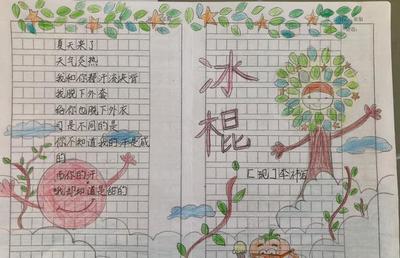 夏天来了
天气炎热
我和你都汗流浃背
我脱下外套
给你也脱下外衣
可是不同的是
你不知道我的汗是咸
的
而你的汗
我却知道是甜的
冰棍
[现]李